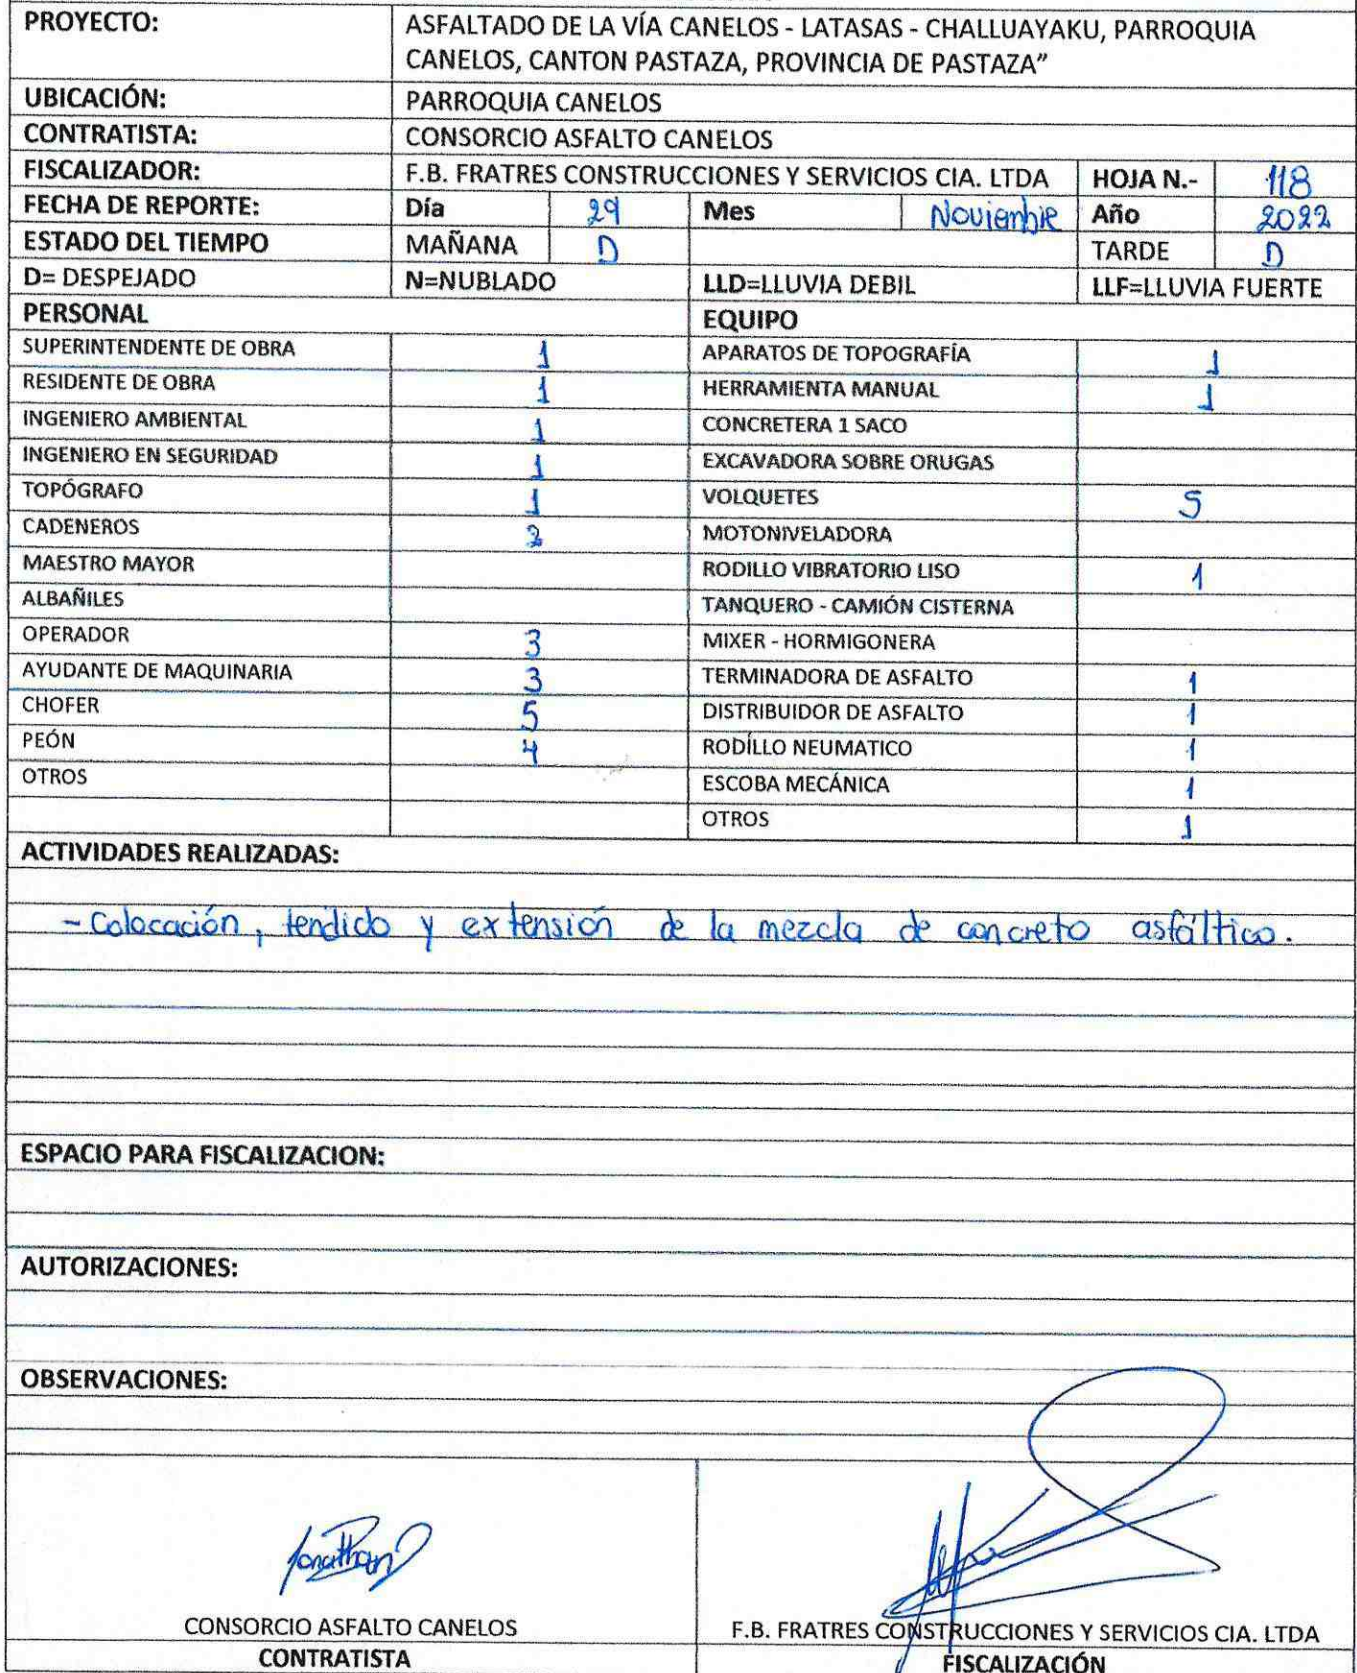 PROYECTO: ASFALTADO DE LA VÍA CANELOS - LATASAS - CHALLUAYAKU, PARROQUIA
CANELOS, CANTON PASTAZA, PROVINCIA DE PASTAZA”
UBICACIÓN: PARROQUIA CANELOS
CONTRATISTA: CONSORCIO ASFALTO CANELOS
FISCALIZADOR: F.B. FRATRES CONSTRUCCIONES Y SERVICIOS CIA. LTDA HOJA N.- 118
FECHA DE REPORTE: Día 29 Mes Noviembre Año 2022
ESTADO DEL TIEMPO MAÑANA D TARDE D
D= DESPEJADO N=NUBLADO LLD=LLUVIA DEBIL LLF=LLUVIA FUERTE
PERSONAL EQUIPO
SUPERINTENDENTE DE OBRA 1 APARATOS DE TOPOGRAFÍA 1
RESIDENTE DE OBRA 1 HERRAMIENTA MANUAL 1
INGENIERO AMBIENTAL 1 CONCRETERA 1 SACO
INGENIERO EN SEGURIDAD 1 EXCAVADORA SOBRE ORUGAS
TOPÓGRAFO 1 VOLQUETES 5
CADENEROS 2 MOTONIVELADORA
MAESTRO MAYOR RODILLO VIBRATORIO LISO 1
ALBAÑILES TANQUERO - CAMIÓN CISTERNA
OPERADOR 3 MIXER - HORMIGONERA
AYUDANTE DE MAQUINARIA 3 TERMINADORA DE ASFALTO 1
CHOFER 5 DISTRIBUIDOR DE ASFALTO 1
PEÓN 4 RODÍLLO NEUMATICO 1
OTROS ESCOBA MECÁNICA 1
OTROS 1
ACTIVIDADES REALIZADAS:
- Colocación, tendido y extensión de la mezcla de concreto asfáltico.
ESPACIO PARA FISCALIZACION:
AUTORIZACIONES:
OBSERVACIONES:
Jonathan
CONSORCIO ASFALTO CANELOS F.B. FRATRES CONSTRUCCIONES Y SERVICIOS CIA. LTDA
CONTRATISTA FISCALIZACIÓN